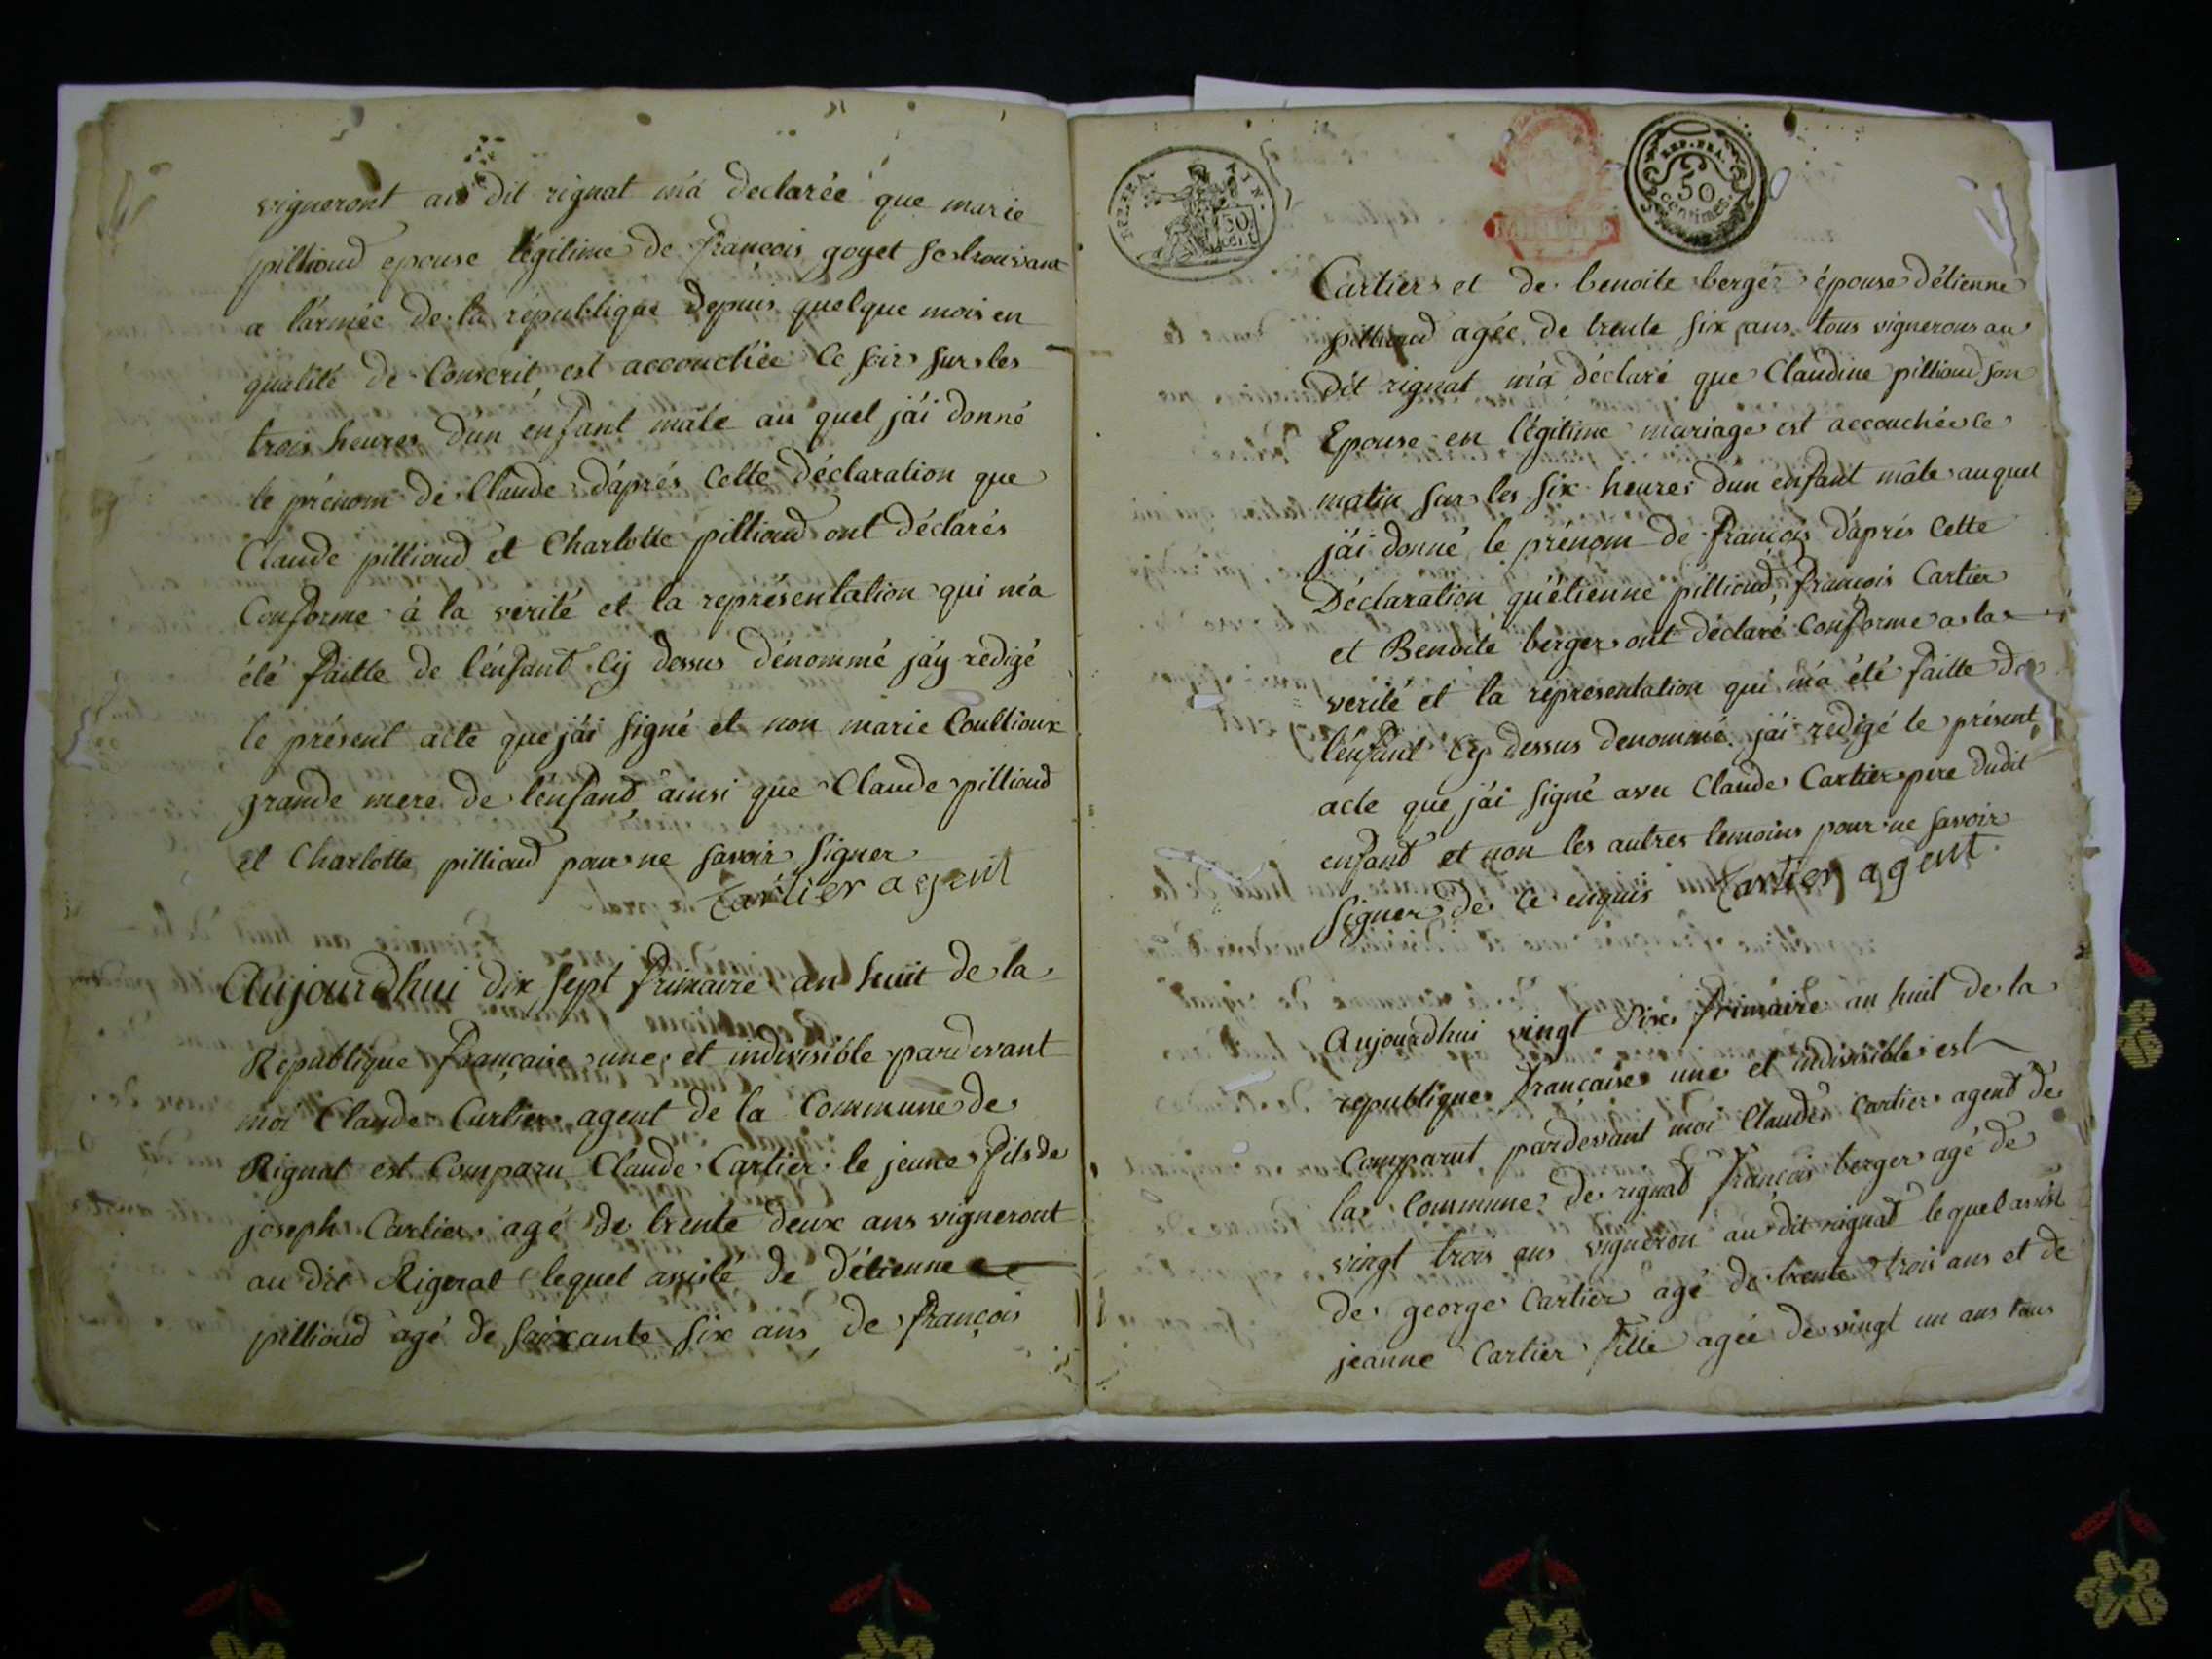 vigneront au dit rignat m'a declarée que marie
pillioud epouse légitime de françois goyet se trouvant
a l'armée de la république depuis quelque mois en
qualité de Conscrit, est accouchée ce soir sur les
trois heures d'un enfant mâle au quel j'ái donné
le prénom de Claude d'áprés Cette déclaration que
Claude pillioud et Charlotte pillioud ont déclarés
Conforme à la vérité et la représentation qui m'a
été faitte de l'enfant Cy dessus dénommé j'áy redigé
le présent acte que j'ái signé et non marie Coultioux
grande mere de l'enfand ainsi que Claude pillioud
et Charlotte pillioud pour ne savoir signer
Cartier agent
Aujourd'hui dix sept frimaire an huit de la
Republique française une et indivisible pardevant
moi Claude Cartier agent de la Commune de
Rignat est Comparu Claude Cartier le jeune fils de
joseph Cartier agé de trente deux ans vigneront
au dit Rignat lequel assisté de d'étienne
pillioud agé de soixante six ans, de françois
REP. FRA.
50
CENT
REP. FRA.
50
centimes
Cartier et de benoite berger épouse d'étienne
pillioud agée de trente six ans tous vignerons au
dit rignat m'a déclaré que Claudine pillioud son
Epouse en légitime mariage est accouchée ce
matin sur les six heures d'un enfant mâle auquel
j'ái donné le prénom de françois d'áprés Cette
Déclaration qu'étienne pillioud, françois Cartier
et Benoite berger ont déclaré Conforme a la
verité et la representation qui m'á été faitte de
l'enfant Cy dessus denommé j'ái redigé le présent
acte que j'ái signé avec Claude Cartier pere dudit
enfand et non les autres temoins pour ne savoir
signer de ce enquis Cartier agent
Aujourdhui vingt six frimaire an huit de la
republique française une et indivisible est
Comparut pardevant moi Claude Cartier agent de
la Commune de rignad françois berger agé de
vingt trois ans vigneron au dit rignad lequel assist
de george Cartier agé de trente trois ans et de
jeanne Cartier fille agée de vingt un ans tous